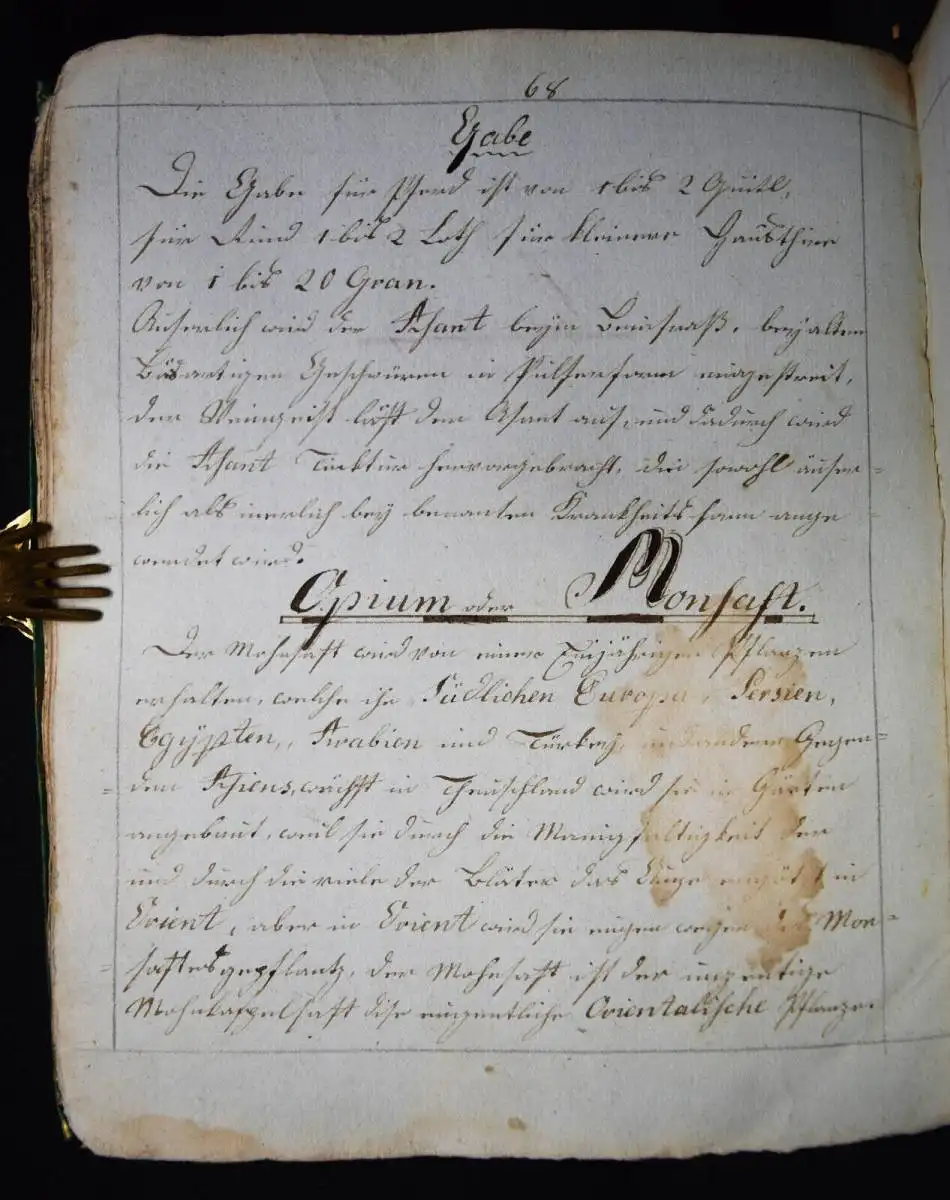 68
Gabe
Die Gabe für Pferd ist von 1 bis 2 Quitl,
für Rind 1 bis 2 Loth für kleinere Hausthire
von 1 bis 20 Gran.
Äuserlich wird der Asant beym Beinfraß, bey alten
Bösartigen Geschwüren in Pulferform eingestreit,
der Weingeist löst den Asant auf, und dadurch wird
die Asant Tinktur hervorgebracht, die sowohl äuser=
lich als inerlich bey benanten Krankheits fann ange
wendet wird.
Opium oder Monsaft.
Der Mohnsaft wird von einer Einjährigen Pflanzen
erhalten, welche ihr Südlichen Europa, Persien,
Egÿpten, Arabien und Türkey, und andern Gegen=
den Asiens, wächst in Theuschland wird sie in Gärten
angebaut, weil sie durch die Manigfaltigkeit der
und durch die viele der Bläter das Auge ergötzt in
Orient, aber in Orient wird sie eigen wegen des Mon=
saftes gepflantz, der Mohnsaft ist der
Mohnkappelsaft dise eigentliche Orientalische Pflanze.